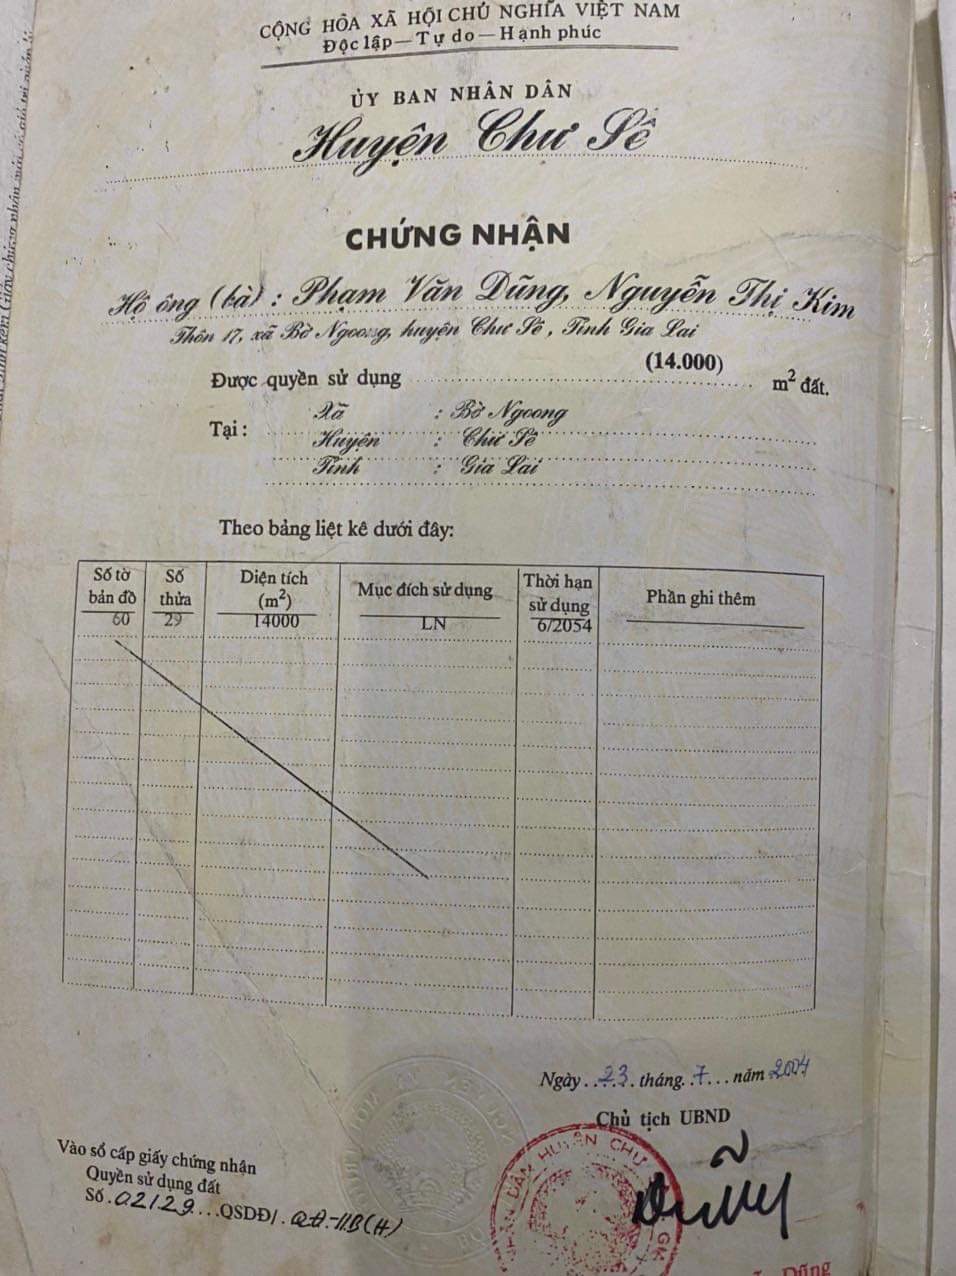 CỘNG HÒA XÃ HỘI CHỦ NGHĨA VIỆT NAM
Độc lập — Tự do — Hạnh phúc
ỦY BAN NHÂN DÂN
Huyện Chư Sê
CHỨNG NHẬN
Hộ ông (bà) : Phạm Văn Dũng, Nguyễn Thị Kim
Thôn 17, xã Bờ Ngoong, huyện Chư Sê, Tỉnh Gia Lai
(14.000)
Được quyền sử dụng m² đất.
Tại : Xã : Bờ Ngoong
Huyện : Chư Sê
Tỉnh : Gia Lai
Theo bảng liệt kê dưới đây:
Số tờ bản đồ Số thửa Diện tích (m²) Mục đích sử dụng Thời hạn sử dụng Phần ghi thêm
60 29 14000 LN 6/2054
Ngày 23 tháng 7 năm 2004
Chủ tịch UBND
Vào sổ cấp giấy chứng nhận
Quyền sử dụng đất
Số 02129 QSDĐ/ QĐ-UB(H)
NHÂN DÂN HUYỆN CHƯ
Dũng